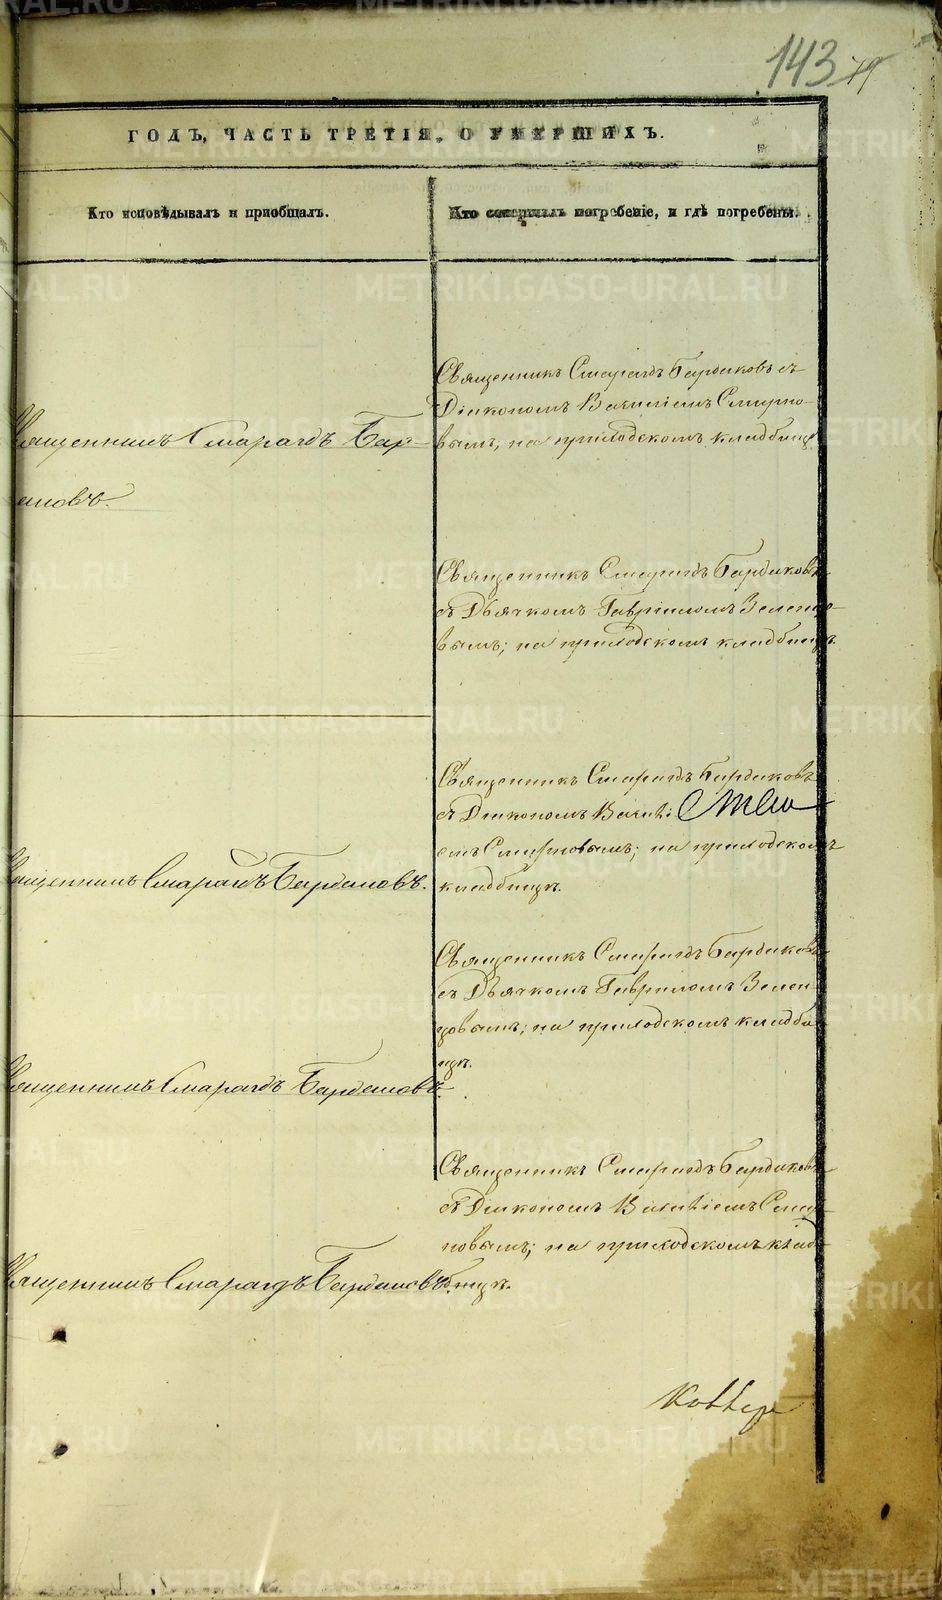 143 79
ГОДЪ, ЧАСТЬ ТРЕТІЯ, О УМЕРШИХЪ.
Кто исповѣдывалъ и пріобщалъ.
Кто совершалъ погребеніе, и гдѣ погребены.
Священникъ Смарагдъ Бардаковъ съ
Діакономъ Василіемъ Смирно-
вымъ; на приходскомъ кладбищѣ.
вященникъ Смарагдъ Бар-
даковъ.
Священникъ Смарагдъ Бардаковъ
съ Дьячкомъ Гавріиломъ Зеленцо-
вымъ; на приходскомъ кладбищѣ.
Священникъ Смарагдъ Бардаковъ
съ Діакономъ Василі
емъ Смирновымъ; на приходскомъ
кладбищѣ.
Священникъ Смарагдъ Бардаковъ.
Священникъ Смарагдъ Бардаковъ
съ Дьячкомъ Гавріиломъ Зелен-
цовымъ; на приходскомъ кладби-
щѣ.
Священникъ Смарагдъ Бардаковъ.
Священникъ Смарагдъ Бардаковъ
съ Діакономъ Василіемъ Смир-
новымъ; на приходскомъ клад-
бищѣ.
Священникъ Смарагдъ Бардаковъ.
METRIKI.GASO-URAL.RU